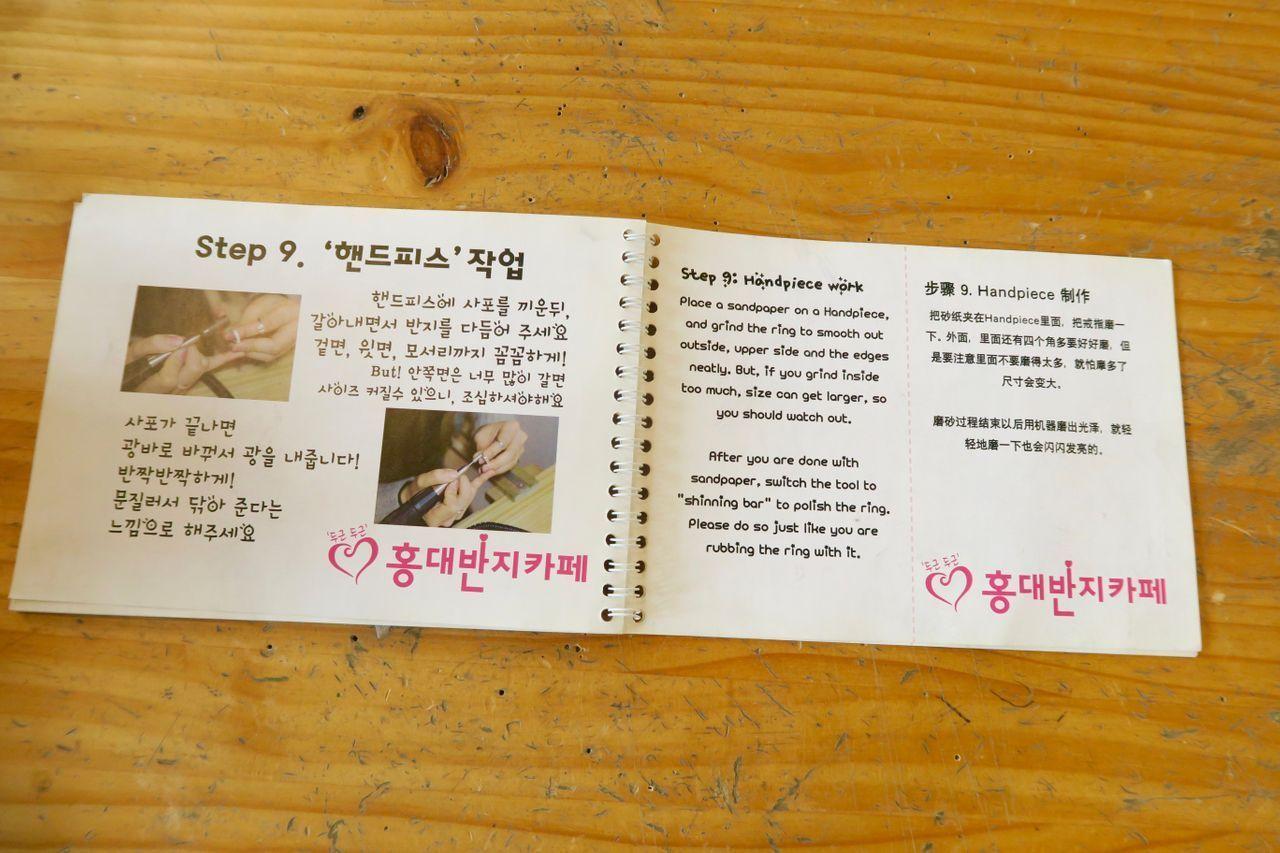 Step 9. ‘핸드피스’ 작업
핸드피스에 사포를 끼운뒤,
갈아내면서 반지를 다듬어 주세요
겉면, 윗면, 모서리까지 꼼꼼하게!
But! 안쪽면은 너무 많이 갈면
사이즈 커질수 있으니, 조심하셔야해요
사포가 끝나면
광바로 바꿔서 광을 내줍니다!
반짝반짝하게!
문질러서 닦아 준다는
느낌으로 해주세요
'두근 두근'
홍대반지카페
Step 9: Handpiece work
Place a sandpaper on a Handpiece,
and grind the ring to smooth out
outside, upper side and the edges
neatly. But, if you grind inside
too much, size can get larger, so
you should watch out.
After you are done with
sandpaper, switch the tool to
"shinning bar" to polish the ring.
Please do so just like you are
rubbing the ring with it.
步骤 9. Handpiece 制作
把砂纸夹在Handpiece里面，把戒指磨一
下。外面，里面还有四个角多要好好磨，但
是要注意里面不要磨得太多，就怕摩多了
尺寸会变大。
磨砂过程结束以后用机器磨出光泽，就轻
轻地磨一下也会闪闪发亮的。
'두근 두근'
홍대반지카페